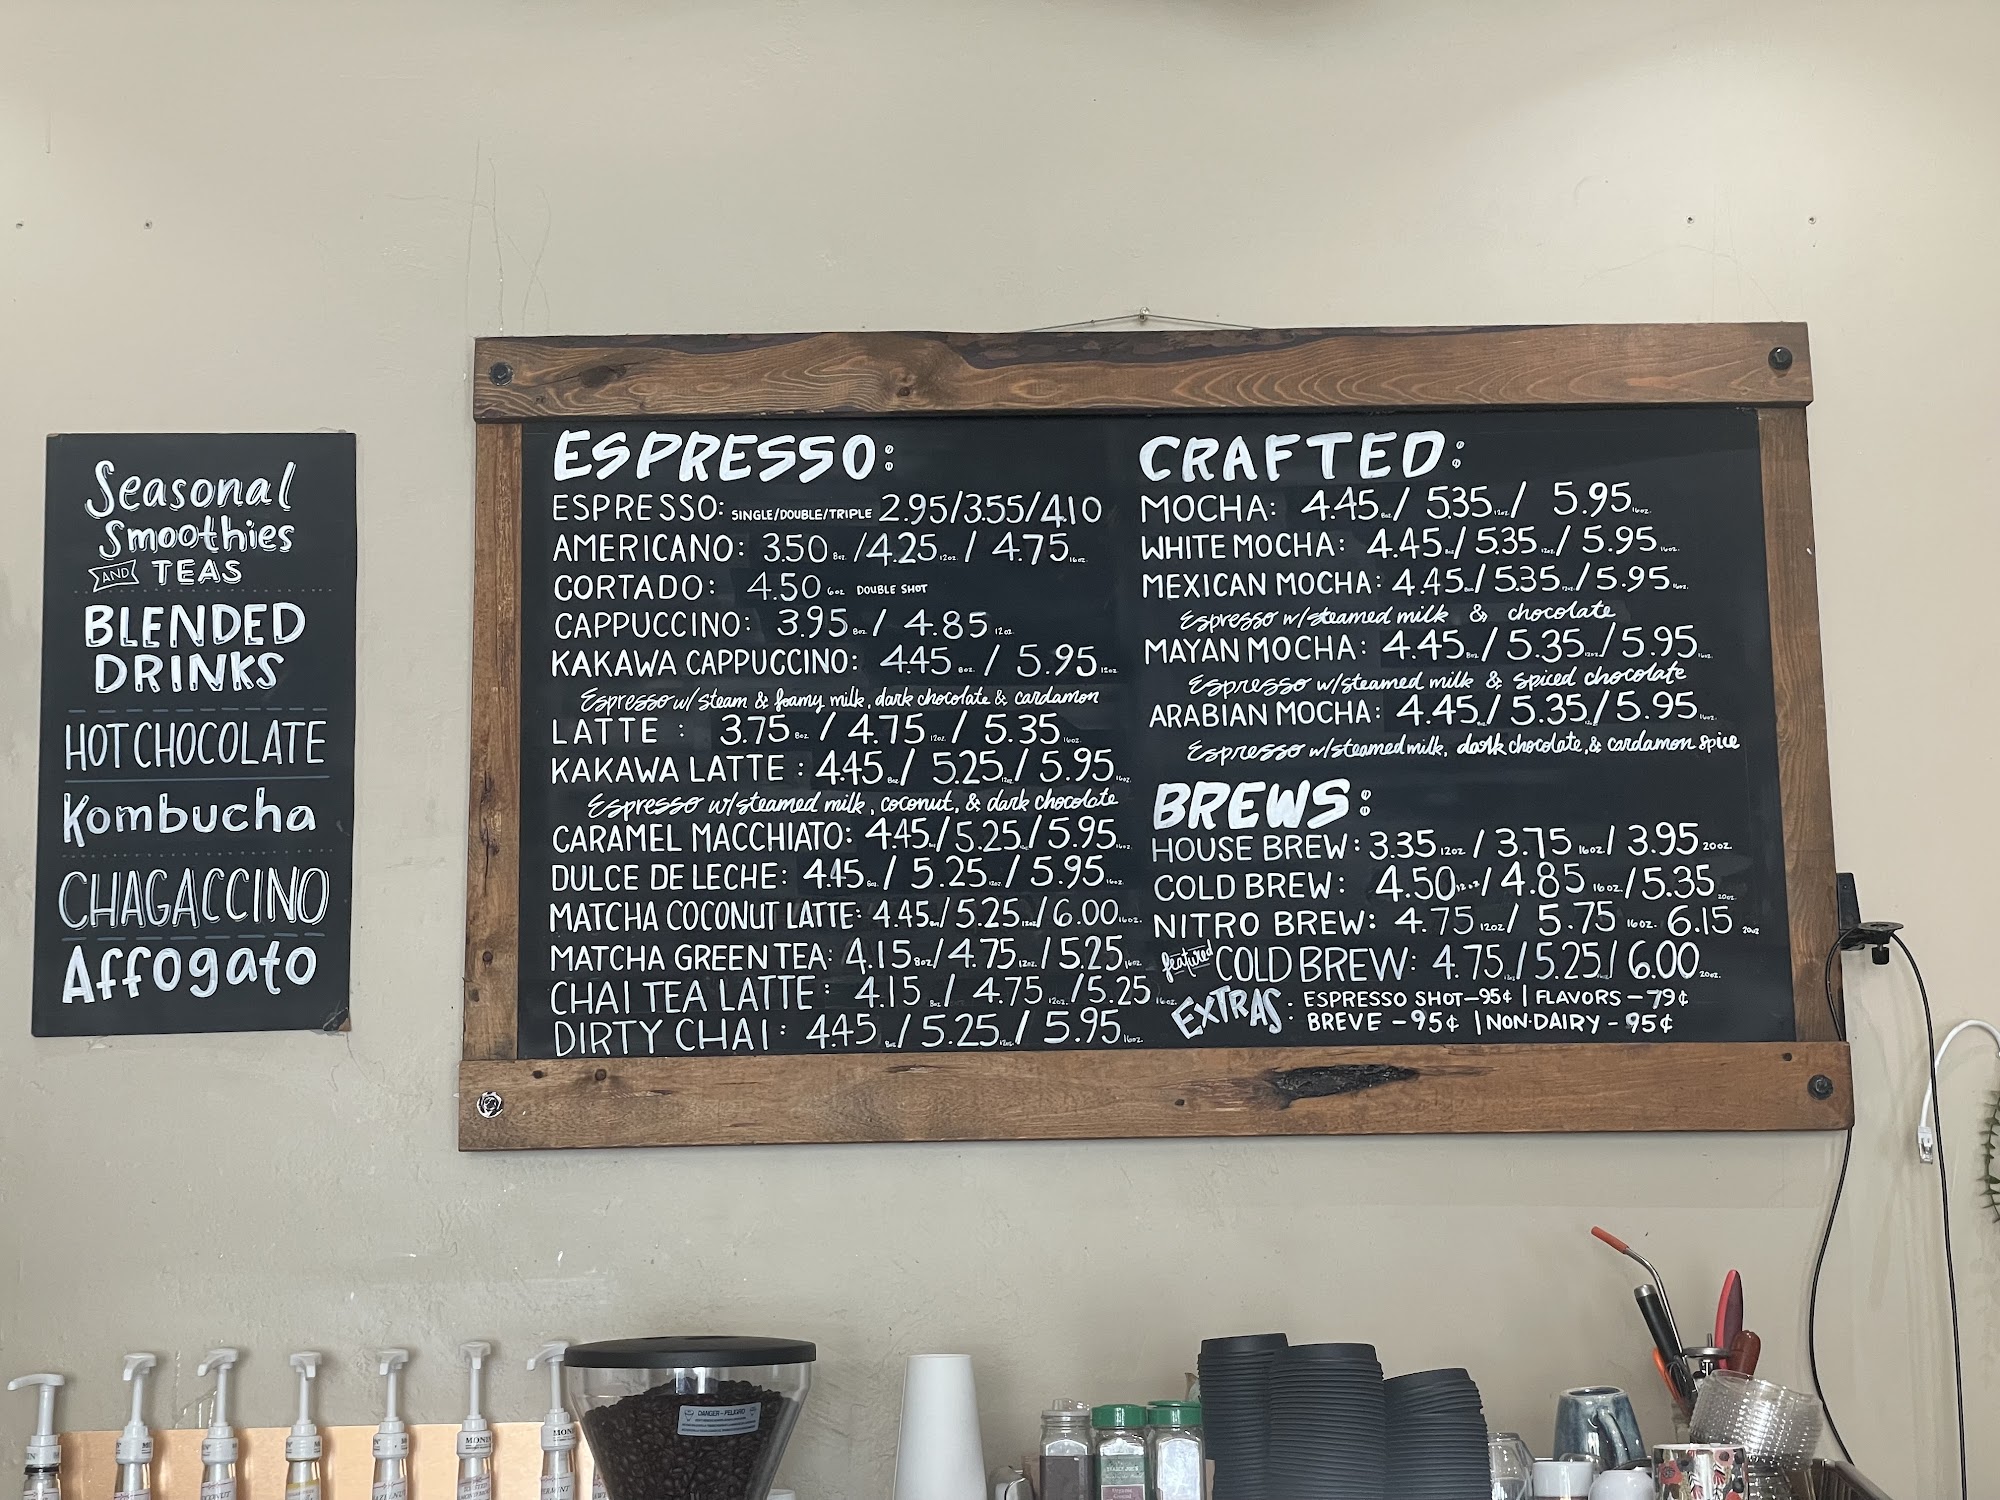 Seasonal
Smoothies
AND TEAS
BLENDED
DRINKS
HOT CHOCOLATE
Kombucha
CHAGACCINO
Affogato
ESPRESSO:
ESPRESSO: SINGLE/DOUBLE/TRIPLE 2.95/3.55/4.10
AMERICANO: 3.50 8oz. / 4.25 12oz. / 4.75 16oz.
CORTADO: 4.50 6oz DOUBLE SHOT
CAPPUCCINO: 3.95 8oz / 4.85 12oz.
KAKAWA CAPPUCCINO: 4.45 8oz. / 5.95 12oz.
Espresso w/ steam & foamy milk, dark chocolate & cardamon
LATTE : 3.75 8oz. / 4.75 12oz. / 5.35 16oz.
KAKAWA LATTE : 4.45 8oz / 5.25 12oz. / 5.95 16oz.
Espresso w/steamed milk, coconut, & dark chocolate
CARAMEL MACCHIATO: 4.45 / 5.25 / 5.95 16oz.
DULCE DE LECHE: 4.45 8oz. / 5.25 12oz. / 5.95 16oz.
MATCHA COCONUT LATTE: 4.45 8oz / 5.25 12oz / 6.00 16oz.
MATCHA GREEN TEA: 4.15 8oz / 4.75 12oz. / 5.25 16oz.
CHAI TEA LATTE: 4.15 8oz / 4.75 12oz. / 5.25 16oz.
DIRTY CHAI: 4.45 8oz. / 5.25 12oz. / 5.95 16oz.
CRAFTED:
MOCHA: 4.45 8oz / 5.35 12oz. / 5.95 16oz.
WHITE MOCHA: 4.45 8oz / 5.35 12oz. / 5.95 16oz.
MEXICAN MOCHA: 4.45 8oz. / 5.35 12oz. / 5.95 16oz.
Espresso w/steamed milk & chocolate
MAYAN MOCHA: 4.45 8oz. / 5.35 12oz / 5.95 16oz.
Espresso w/steamed milk & spiced chocolate
ARABIAN MOCHA: 4.45 8oz / 5.35 12oz / 5.95 16oz.
Espresso w/steamed milk, dark chocolate, & cardamon spice
BREWS:
HOUSE BREW: 3.35 12oz. / 3.75 16oz / 3.95 20oz.
COLD BREW: 4.50 12oz / 4.85 16oz. / 5.35 20oz.
NITRO BREW: 4.75 12oz / 5.75 16oz. 6.15 20oz
featured COLD BREW: 4.75 / 5.25 / 6.00 20oz.
EXTRAS: ESPRESSO SHOT-95¢ | FLAVORS - 79¢
BREVE - 95¢ | NON-DAIRY - 95¢
DANGER - PELIGRO